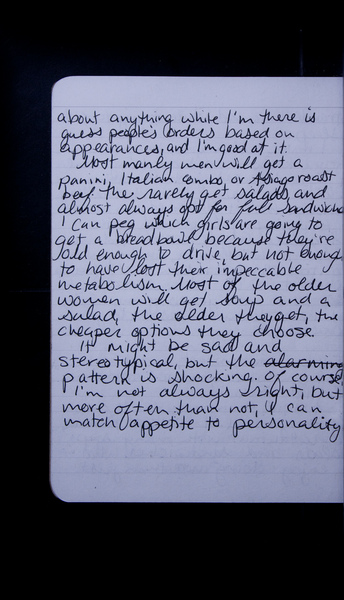 about anything while I'm there is
guess people's orders based on
appearances, and I'm good at it.
Most manly men will get a
panini, Italian combo, or Asiago roast
beef. The rarely get salads, and
almost always opt for full sandwiches
I can peg which girls are going to
get a bread bowl because they're
old enough to drive, but not enough
to have lost their impeccable
metabolism. Most of the older
women will get soup and a
salad, the older they get, the
cheaper options they choose.
It might be sad and
stereotypical, but the alarming
pattern is shocking. Of course
I'm not always right, but
more often than not, I can
match appetite to personality